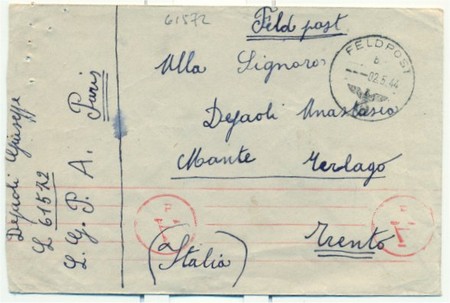 61572
Feldpost
FELDPOST
b
-2.5.44
Alla Signora
Depaoli Anastasia
Monte Terlago
Trento
(Italia)
Depaoli Giuseppe
L 61572
L. G. P. A. Paris